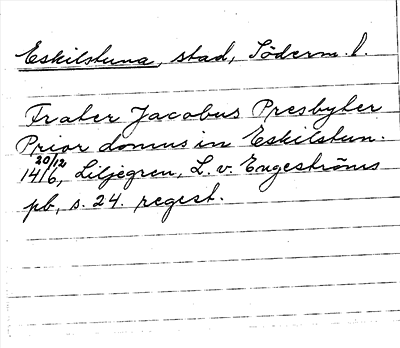 Eskilstuna, stad, Söderm. l.
Frater Jacobus Presbyter
Prior domus in Eskilstun.
20/12
1416, Liljegren, L. v. Engeströms
pb, s. 24. regist.